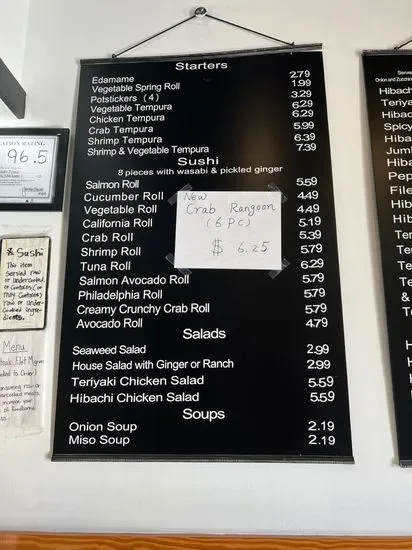 Starters
Edamame 2.79
Vegetable Spring Roll 1.99
Potstickers (4) 3.29
Vegetable Tempura 6.29
Chicken Tempura 6.29
Crab Tempura 5.99
Shrimp Tempura 6.39
Shrimp & Vegetable Tempura 7.39
Sushi
8 pieces with wasabi & pickled ginger
Salmon Roll 5.59
Cucumber Roll 4.49
Vegetable Roll 4.49
California Roll 5.19
Crab Roll 5.39
Shrimp Roll 5.79
Tuna Roll 6.29
Salmon Avocado Roll 5.79
Philadelphia Roll 5.79
Creamy Crunchy Crab Roll 5.79
Avocado Roll 4.79
Salads
Seaweed Salad 2.99
House Salad with Ginger or Ranch 2.99
Teriyaki Chicken Salad 5.59
Hibachi Chicken Salad 5.59
Soups
Onion Soup 2.19
Miso Soup 2.19
New
Crab Rangoon
(6 pc)
$ 6.25
ATION RATING
96.5
* Sushi
This item
served raw
or undercooked
or contains (or
may contain)
raw or under-
cooked ingre-
dients.
Menu
Serve
Onion and Zucchini
Hibach
Teriya
Hibac
Spicy
Hibac
Jum
Hiba
Pep
File
Hiba
Hiba
&
H